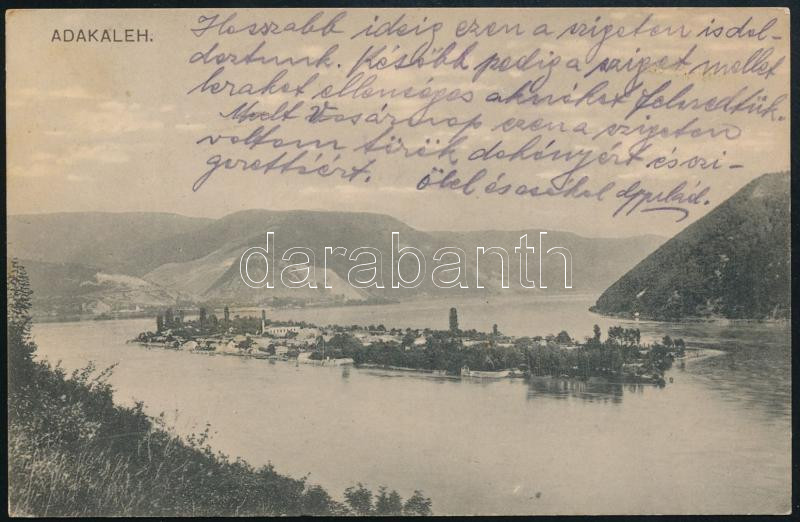 ADAKALEH.
Hosszabb ideig ezen a szigeten isdol-
doztunk. Később pedig a sziget mellet
lerakot ellenséges aknákat felszedtük.
Mult Vasárnap ezen a szigeten
voltam török dohányért és szi-
garettáért. Ölel és csókol Apulád.
darabanth